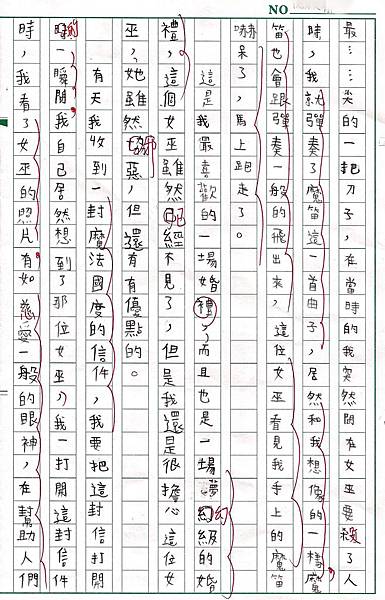 NO
最……尖的一把刀子,在當時的我突然間在女巫要殺了人
時,我就彈奏了魔笛這一首曲子,居然和我想像的一樣,魔
笛也會跟彈奏一般的飛出來,這位女巫看見我手上的魔笛
嚇呆了,馬上跑走了。
這是我最喜歡的一場婚禮,而且也是一場夢幻級的婚
禮,這個女巫雖然已經不見了,但是我還是很擔心這位女
巫,她雖然邪惡,但還有有優點的。
有天我收到一封魔法國度的信件,我要把這封信打開
時,一瞬間,我自己居然想到了那位女巫,我一打開這封信件
時,我看了女巫的照片,有如慈愛一般的眼神,在幫助人們